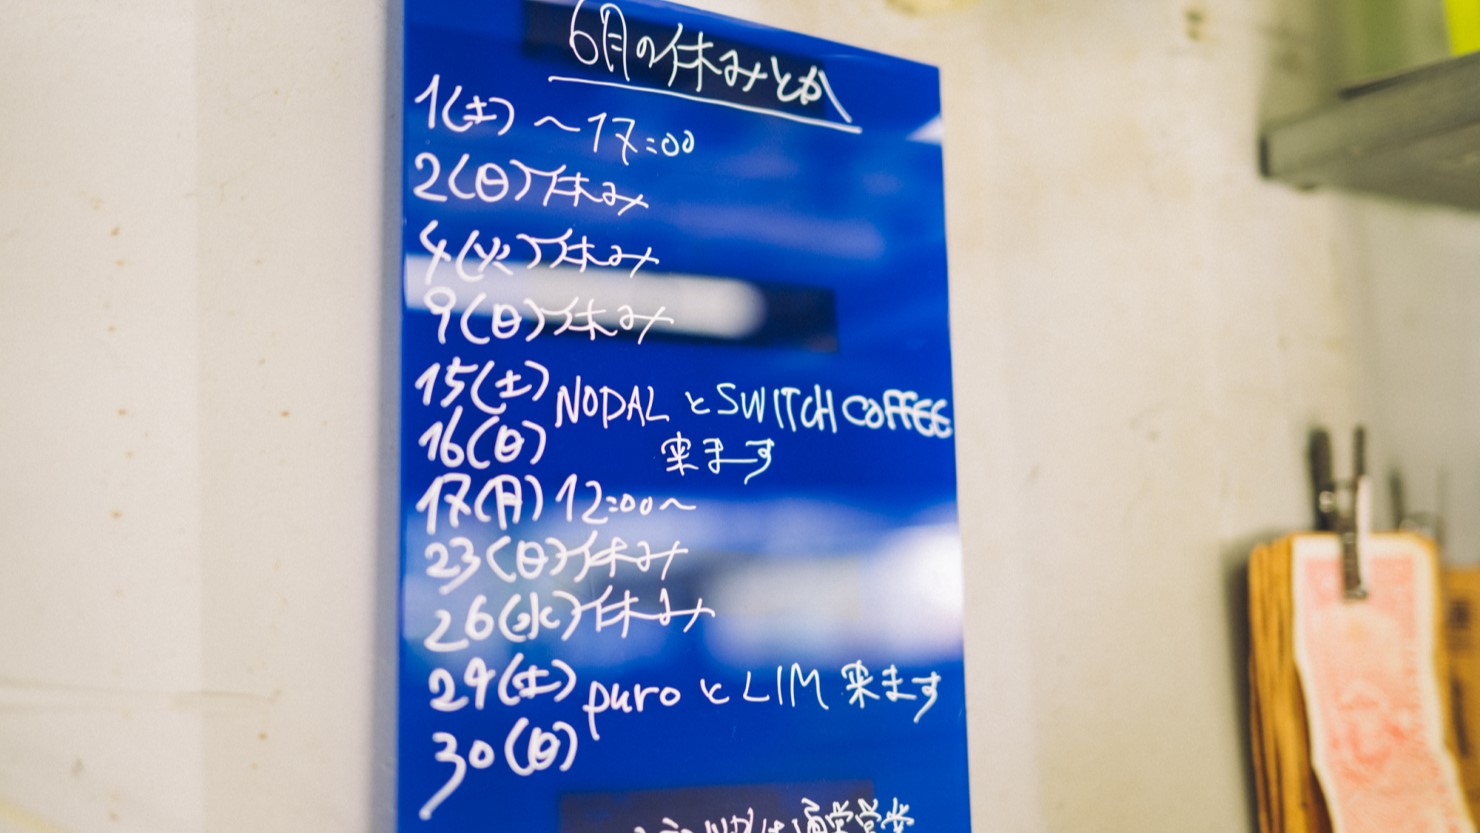 6月の休みとか
1(土) 〜17:00
2(日)休み
4(火)休み
9(日)休み
15(土) NODAL と SWITCH COFFEE
16(日) 来ます
17(月) 12:00〜
23(日)休み
26(水)休み
29(土) puro と LIM 来ます
30(日)
は通常営業